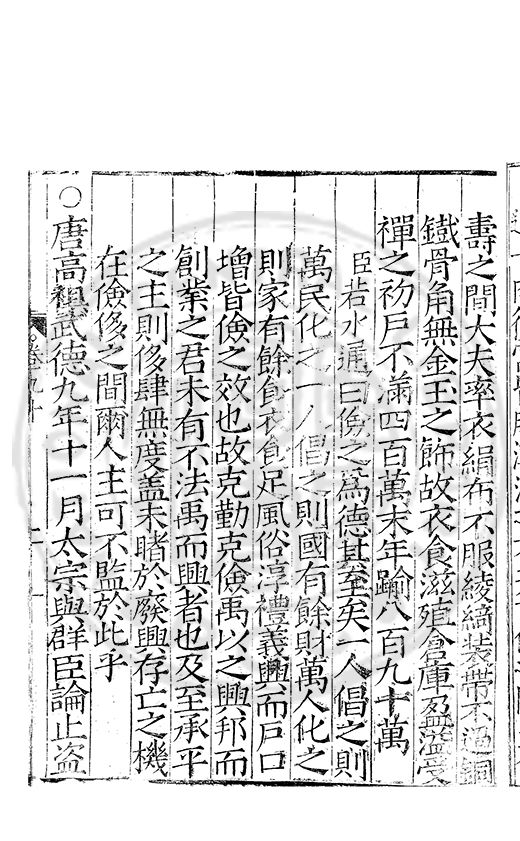 壽之間大夫率衣絹布不服綾綺裝帶不過銅
鐵骨角無金玉之飾故衣食滋殖倉庫盈溢受
禪之初戶不滿四百萬末年踰八百九十萬
臣若水通曰儉之爲德其至矣一人倡之則
萬民化之一人倡之則國有餘財萬人化之
則家有餘食衣食足風俗淳禮義興而戶口
增皆儉之效也故克勤克儉禹以之興邦而
創業之君未有不法禹而興者也及至承平
之主則侈肆無度蓋未睹於廢興存亡之機
在儉侈之間爾人主可不監於此乎
○唐高祖武德九年十一月太宗與群臣論止盜